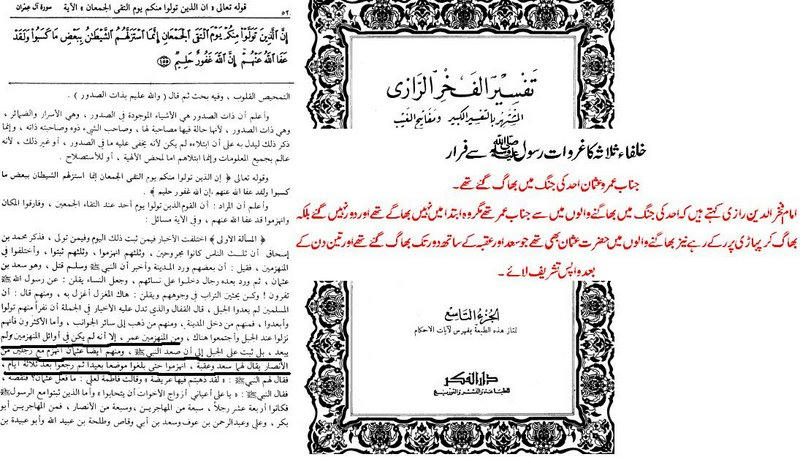 قوله تعالى « ان الذين تولوا منكم يوم التقى الجمعان » الآية
سورة آل عمران
٥٢
إِنَّ ٱلَّذِينَ تَوَلَّوْا۟ مِنكُمْ يَوْمَ ٱلْتَقَى ٱلْجَمْعَانِ إِنَّمَا ٱسْتَزَلَّهُمُ ٱلشَّيْطَٰنُ بِبَعْضِ مَا كَسَبُوا۟ وَلَقَدْ
عَفَا ٱللَّهُ عَنْهُمْ إِنَّ ٱللَّهَ غَفُورٌ حَلِيمٌ ١٥٥
التمحيص القلوب ، وفيه بحث ثم قال ( والله عليم بذات الصدور ) .
وأعلم أن ذات الصدور هي الأشياء الموجودة في الصدور ، وهي الأسرار والضمائر ،
وهي ذات الصدور ، لأنها حالة فيها مصاحبة لها ، وصاحب الشيء ذوه وصاحبته ذاته ، وإنما
ذكر ذلك ليدل به على أن ابتلاءه لم يكن لأنه يخفى عليه ما في الصدور ، أو غير ذلك ، لأنه
عالم بجميع المعلومات وإنما ابتلاهم اما لمحض الألهية ، أو للأستصلاح .
وقوله تعالى ﴿ إن الذين تولوا منكم يوم التقى الجمعان إنما استزلهم الشيطان ببعض ما
كسبوا ولقد عفا الله عنهم إن الله غفور حليم ﴾ .
وأعلم أن المراد : أن القوم الذين تولوا يوم أحد عند التقاء الجمعين ، وفارقوا المكان
وانهزموا قد عفا الله عنهم ، وفي الآية مسائل :
﴿ المسألة الأولى ﴾ اختلفت الأخبار فيمن ثبت ذلك اليوم وفيمن تولى ، فذكر محمد بن
إسحاق أن ثلث الناس كانوا مجروحين ، وثلثهم انهزموا ، وثلثهم ثبتوا ، وأختلفوا في
المنهزمين ، فقيل : أن بعضهم ورد المدينة وأخبر أن النبي ﷺ قتل ، وهو سعد بن
عثمان ، ثم ورد بعده رجال دخلوا على نسائهم ، وجعل النساء يقلن : عن رسول الله ﷺ
تفرون ! وكن يحثين التراب في وجوههم ويقلن : هاك المغزل أغزل به ، ومنهم قال : أن
المسلمين لم يعدوا الجبل ، قال القفال والذي تدل عليه الأخبار في الجملة أن نفراً منهم تولوا
وأبعدوا ، فمنهم من دخل المدينة ، ومنهم من ذهب إلى سائر الجوانب ، وأما الأكثرون فأنهم
نزلوا عند الجبل واجتمعوا هناك ، ومن المنهزمين عمر ، إلا أنه لم يكن في أوائل المنهزمين ولم
يبعد ، بل ثبت على الجبل إلى أن صعد النبي ﷺ ، ومنهم أيضاً عثمان انهزم مع رجلين من
الأنصار يقال لهما سعد وعقبة ، انهزموا حتى بلغوا موضعاً بعيداً ثم رجعوا بعد ثلاثة أيام ،
فقال لهم النبي ﷺ « لقد ذهبتم فيها عريضة » وقالت فاطمة لعلي : ما فعل عثمان ؟ فنقصه ،
فقال النبي ﷺ : « يا علي أعياني أزواج الأخوات أن يتحابوا » وأما الذين ثبتوا مع الرسول ﷺ
فكانوا أربعة عشر رجلاً ، سبعة من المهاجرين ، وسبعة من الأنصار ، فمن المهاجرين أبو
بكر ، وعلي وعبدالرحمن بن عوف وسعد بن أبي وقاص وطلحة بن عبيد الله وأبو عبيدة بن
تفسير الفخر الرازي
المشتهر بالتفسير الكبير ومفاتيح الغيب
خلفاء ثلاثہ کا غزوات رسول ﷺ سے فرار
جناب عمر و عثمان احد کی جنگ میں بھاگ گئے تھے۔
امام فخر الدین رازی کہتے ہیں کہ احد کی جنگ میں بھاگنے والوں میں سے جناب عمر تھے مگر وہ ابتدا میں نہیں بھاگے تھے اور دور نہیں گئے بلکہ
بھاگ کر پہاڑی پر رکے رہے نیز بھاگنے والوں میں حضرت عثمان بھی تھے جو سعد اور عقبہ کے ساتھ دور تک بھاگ گئے تھے اور تین دن کے
بعد واپس تشریف لائے۔
الجزء التاسع
تمتاز هذه الطبعة بفهرس لآيات الأحكام
دار الفكر
للطباعة والنشر والتوزيع